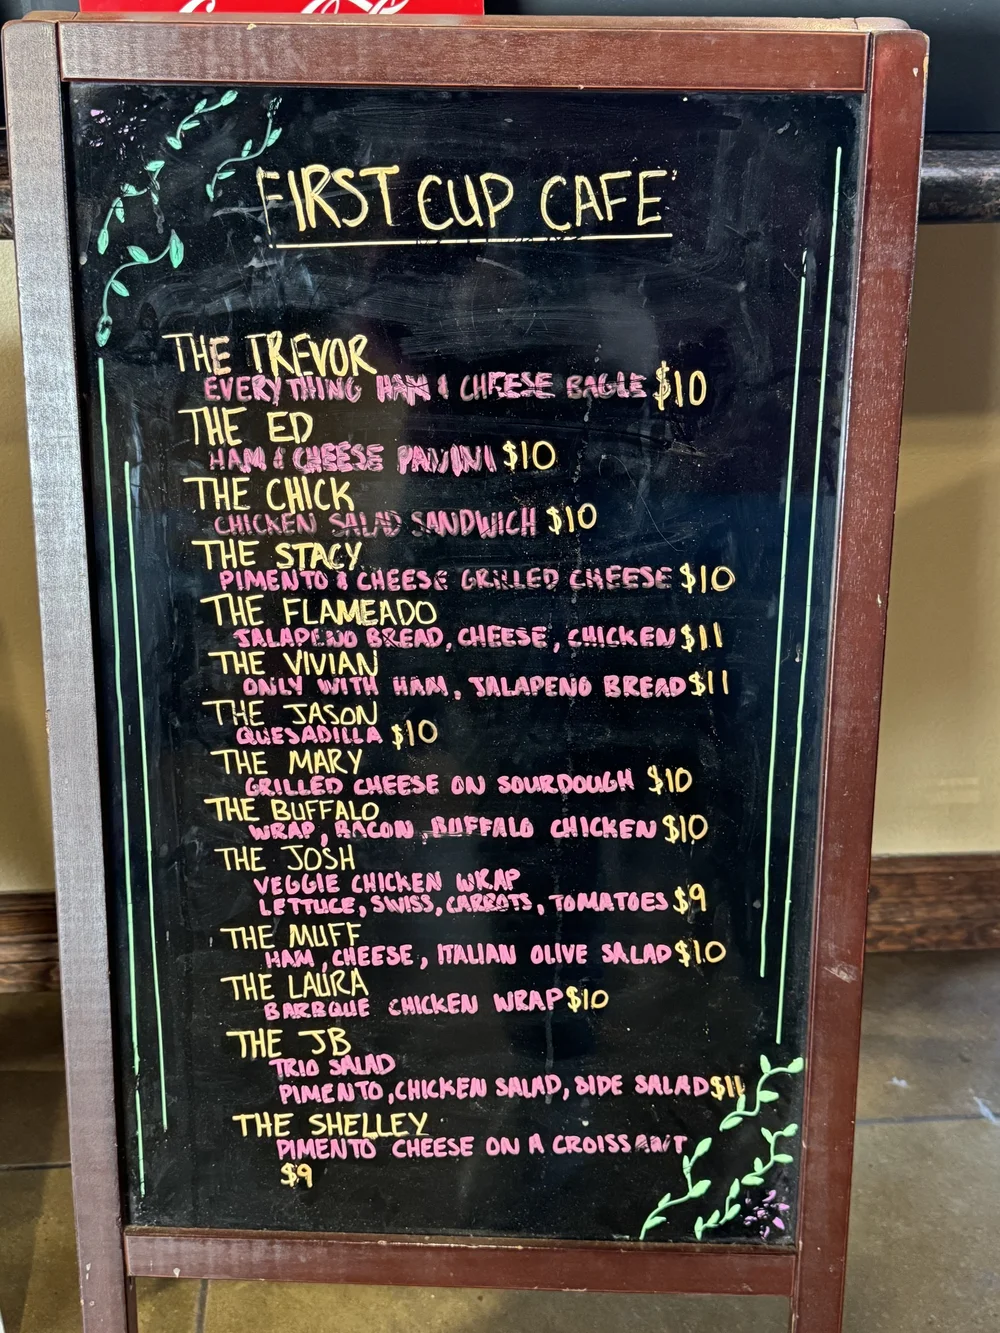 FIRST CUP CAFE
THE TREVOR
EVERYTHING HAM & CHEESE BAGLE $10
THE ED
HAM & CHEESE PANINI $10
THE CHICK
CHICKEN SALAD SANDWICH $10
THE STACY
PIMENTO & CHEESE GRILLED CHEESE $10
THE FLAMEADO
JALAPENO BREAD, CHEESE, CHICKEN $11
THE VIVIAN
ONLY WITH HAM, JALAPENO BREAD $11
THE JASON
QUESADILLA $10
THE MARY
GRILLED CHEESE ON SOURDOUGH $10
THE BUFFALO
WRAP, BACON, BUFFALO CHICKEN $10
THE JOSH
VEGGIE CHICKEN WRAP
LETTUCE, SWISS, CARROTS, TOMATOES $9
THE MUFF
HAM, CHEESE, ITALIAN OLIVE SALAD $10
THE LAURA
BARBQUE CHICKEN WRAP $10
THE JB
TRIO SALAD
PIMENTO, CHICKEN SALAD, SIDE SALAD $11
THE SHELLEY
PIMENTO CHEESE ON A CROISSANT
$9